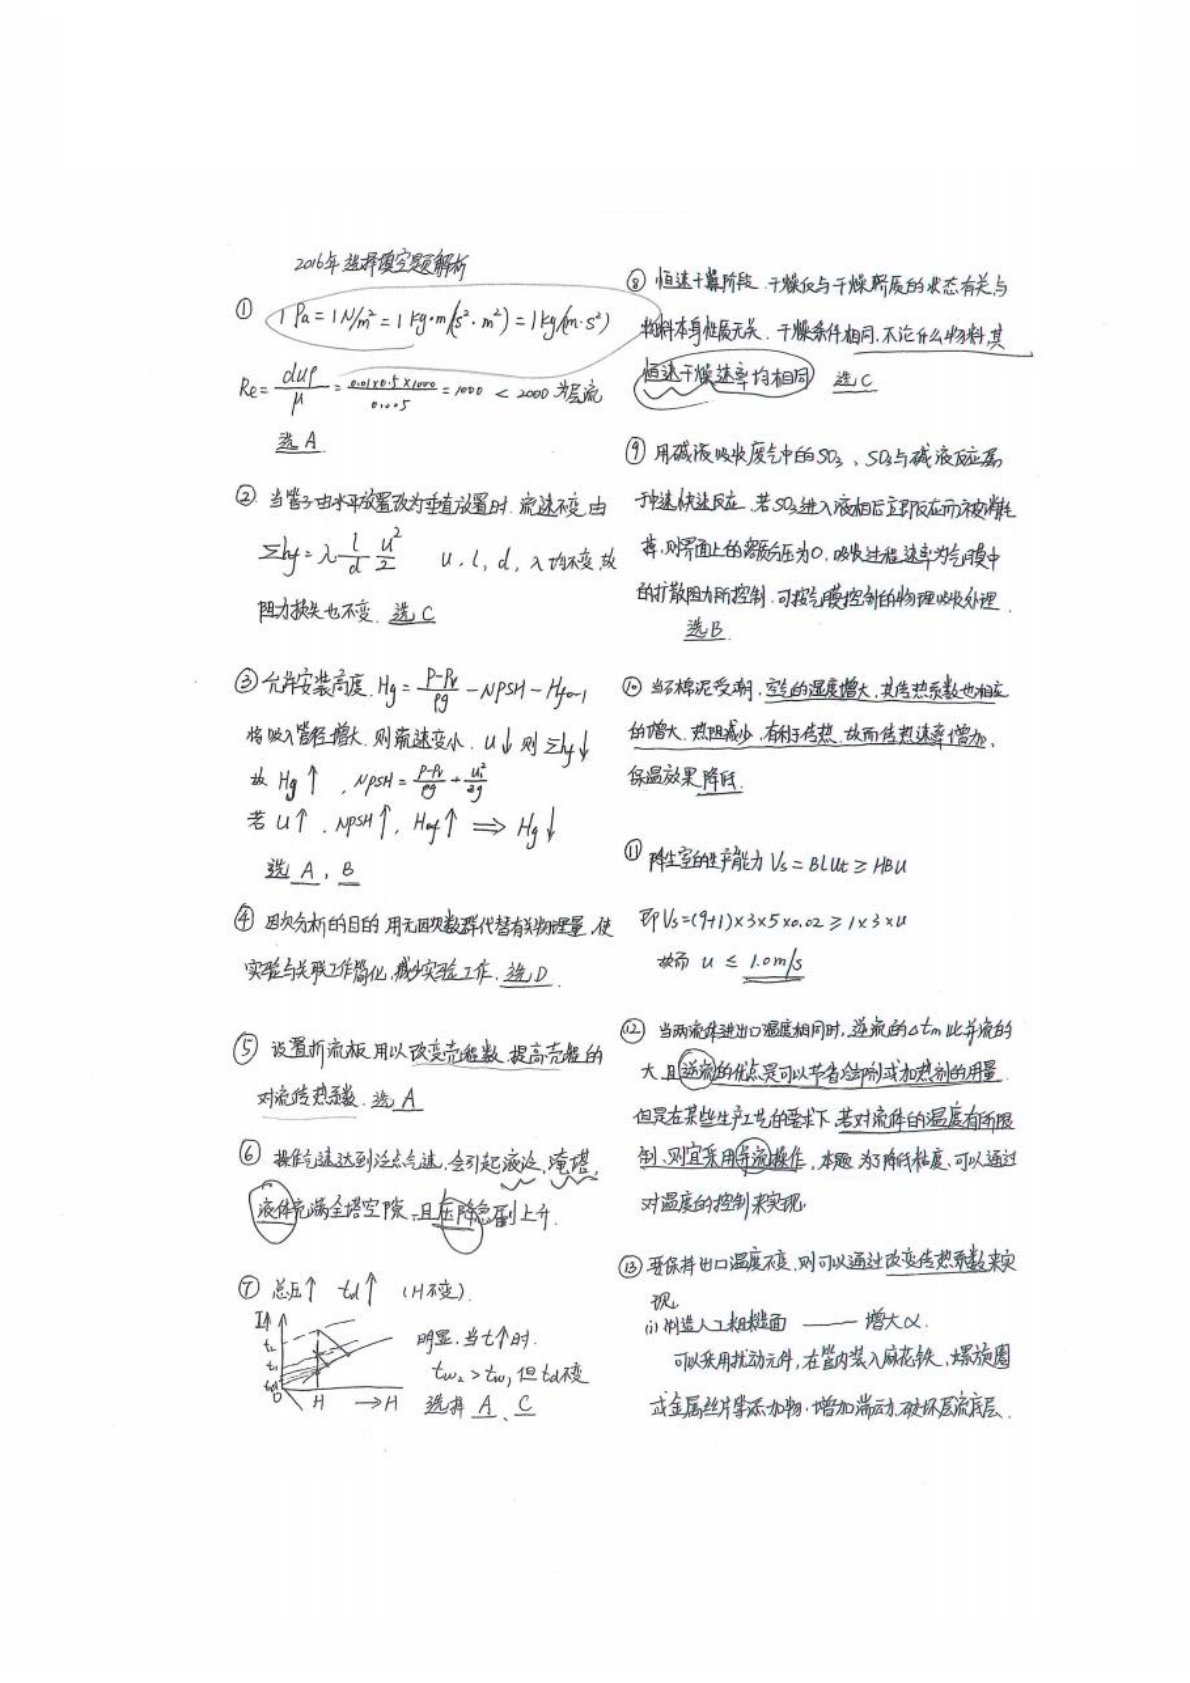 2016年选择填空题解析
① 1Pa=1N/m²=1kg·m/(s²·m²)=1kg/(m·s²)
Re=duρ/μ=0.01×0.5×1000/0.005=1000<2000 为层流
选A
② 当管子由水平放置改为垂直放置时.流速不变,由
Σhf=λ l/d u²/2 u,l,d,λ均不变,故
阻力损失也不变.选C
③允许安装高度.Hg=P-Pv/ρg-NPSH-Hf0-1
将吸入管径增大.则流速变小.u↓则Σhf↓
故Hg↑,NPSH=P-Pv/ρg+u₁²/2g
若u↑.NPSH↑,Hf↑⇒Hg↓
选A,B
④ 因次分析的目的 用无因次数群代替有关物理量,使
实验与关联工作简化,减少实验工作.选D.
⑤ 设置折流板用以改变壳程数,提高壳程的
对流传热系数.选A
⑥ 操作气速达到泛点气速,会引起液泛,淹塔,
液体充满全塔空隙,且压降急剧上升.
⑦ 总压↑ td↑ (H不变).
I↑
t₂
t₁
td
0
H →H
明显.当t↑时.
tw₂>tw₁但td不变
选择A、C
⑧ 恒速干燥阶段.干燥仅与干燥介质的状态有关与
物料本身性质无关.干燥条件相同,不论什么物料,其
恒速干燥速率均相同 选C
⑨ 用碱液吸收废气中的SO₃、SO₃与碱液反应属
于快速反应.若SO₃进入液相后立即反应而被消耗
掉,则界面上的溶质分压为0,吸收过程速率为气膜中
的扩散阻力所控制.可按气膜控制的物理吸收处理.
选B.
⑩ 当石棉泥受潮,空气的湿度增大,其传热系数也相应
的增大.热阻减少,有利于传热.故而传热速率增加,
保温效果降低.
⑪ 降尘室的生产能力Vs=BLut≥HBu
即Vs=(9+1)×3×5×0.02≥1×3×u
故而 u≤1.0m/s
⑫ 当两流体进出口温度相同时,逆流的Δtm比并流的
大.且逆流的优点是可以节省冷却剂或加热剂的用量.
但是在某些生产工艺的要求下,若对流体的温度有所限
制,则宜采用并流操作,本题为了降低粘度,可以通过
对温度的控制来实现.
⑬ 要保持出口温度不变,则可以通过改变传热系数来实
现.
(i)制造人工粗糙面——增大α.
可以采用扰动元件,在管内装入麻花铁,螺旋圈
或金属丝片等添加物,增加湍动,破坏层流底层.